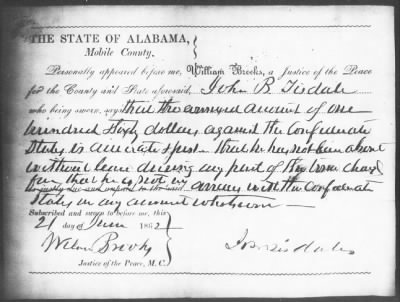 THE STATE OF ALABAMA,
Mobile County.
Personally appeared before me, William Brooks, a Justice of the Peace
for the County and State aforesaid, John B. Tisdale
who being sworn, says that the annexed account of one
hundred Sixty dollars against the Confederate
States is accurate & just – that he has not been absent
without leave during any part of the time charged
for that he is not in arrears with the Confederate
States on any account whatsoever –
Subscribed and sworn to before me, this
21 day of June 1862
Wm Brooks
Justice of the Peace, M. C.